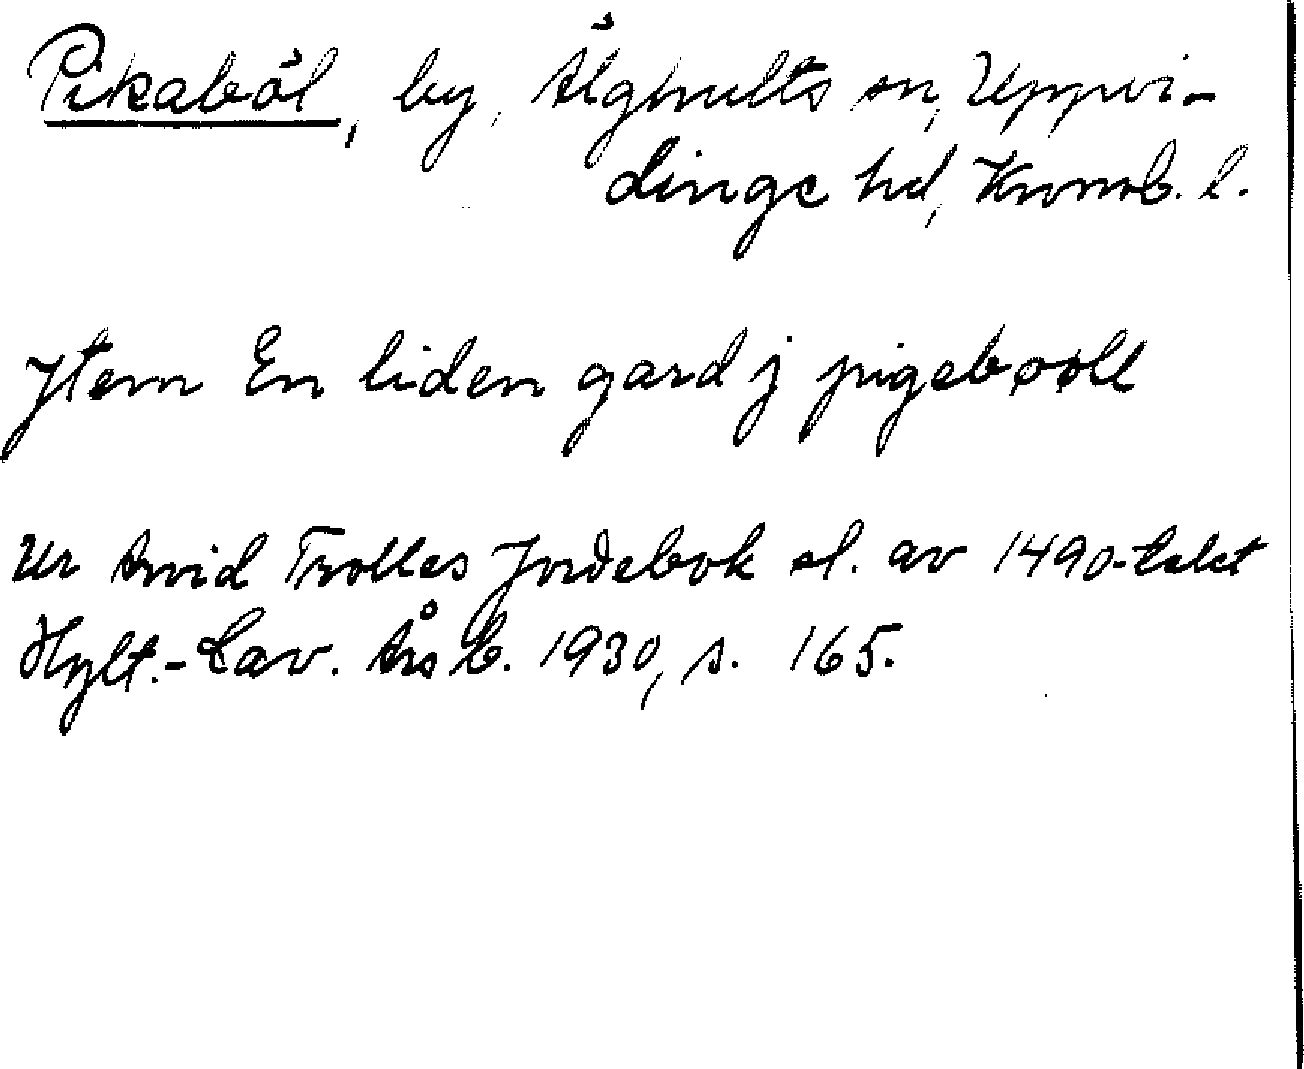 Pikaböl, by, Älghults sn, Uppvi-
dinge hd, Kronob. l.
Jtem En liden gard j pigebøøll
Ur Arvid Trolles Jordebok sl. av 1490-talet
Hylt.-Cav. Årsb. 1930, s. 165.